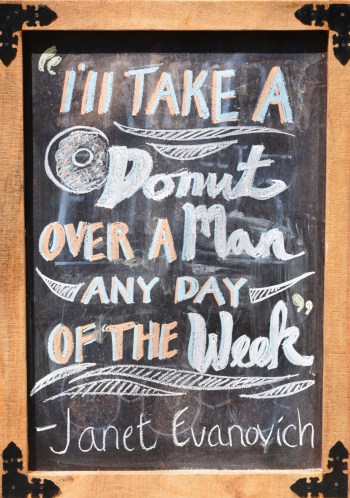 “I'll TAKE A
Donut
OVER A Man
ANY DAY
OF THE Week”
-Janet Evanovich